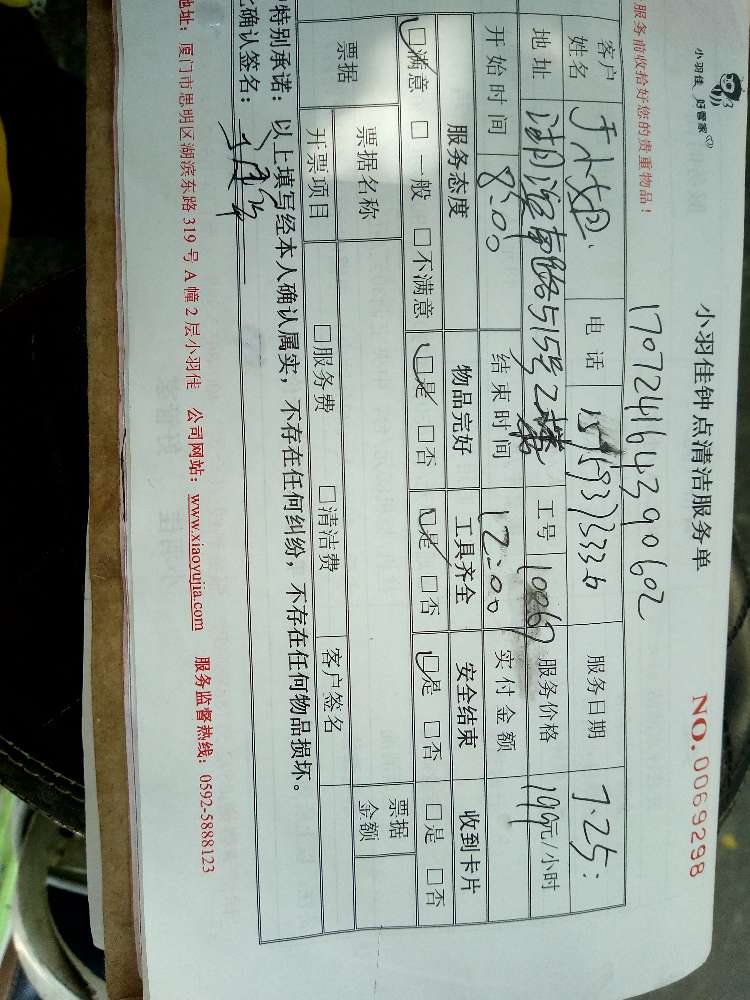 小羽佳 好管家
小羽佳钟点清洁服务单
NO. 0069298
服务前收拾好您的贵重物品！
170724164390602
客户姓名 于小姐 电话 服务日期 7.25
地址 湖滨南路515号2楼 工号 10069 服务价格 元/小时
开始时间 8:00 结束时间 12:00 实付金额
服务态度 物品完好 工具齐全 安全结束 收到卡片
□满意 □一般 □不满意 □是 □否 □是 □否 □是 □否 □是 □否
票据 票据名称 票据金额
开票项目 □服务费 □清洁费 客户签名
特别承诺：以上填写经本人确认属实，不存在任何纠纷，不存在任何物品损坏。
确认签名：
地址：厦门市思明区湖滨东路 319 号 A 幢 2 层小羽佳 公司网站：www.xiaoyujia.com 服务监督热线：0592-5888123